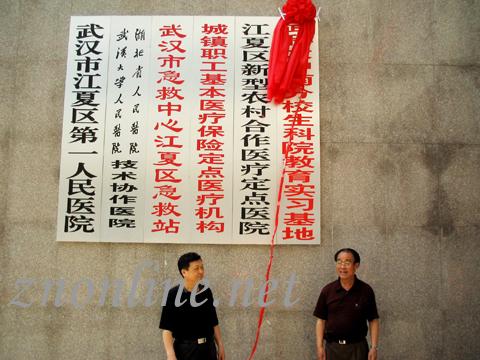 武汉市江夏区第一人民医院
湖北省人民醫院
武漢大學人民醫院
技术协作医院
武汉市急救中心江夏区急救站
城镇职工基本医疗保险定点医疗机构
江夏区新型农村合作医疗定点医院
校生科院教育实习基地
znonline.net